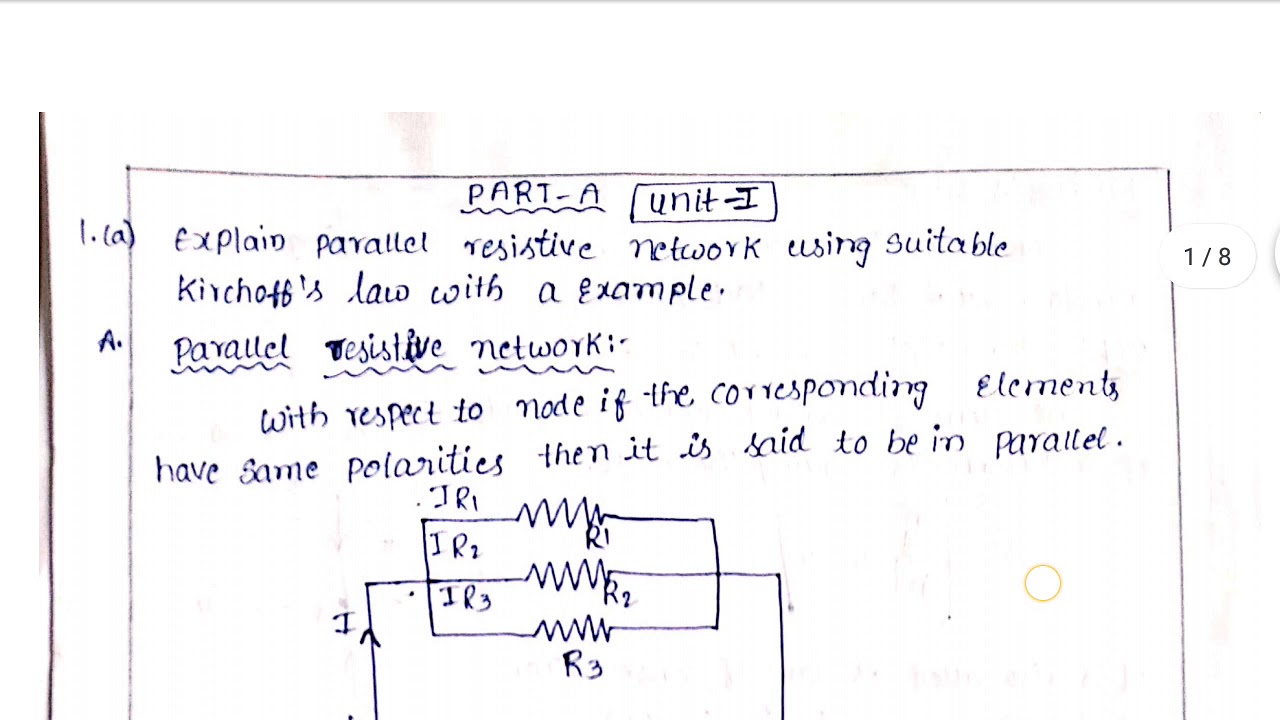 PART-A Unit-I
1.(a) Explain parallel resistive network using suitable
Kirchoff's law with a Example.
A. Parallel resistive network:-
With respect to node if the corresponding Elements
have same polarities then it is said to be in parallel.
IR1
R1
IR2
R2
IR3
I
R3
1 / 8